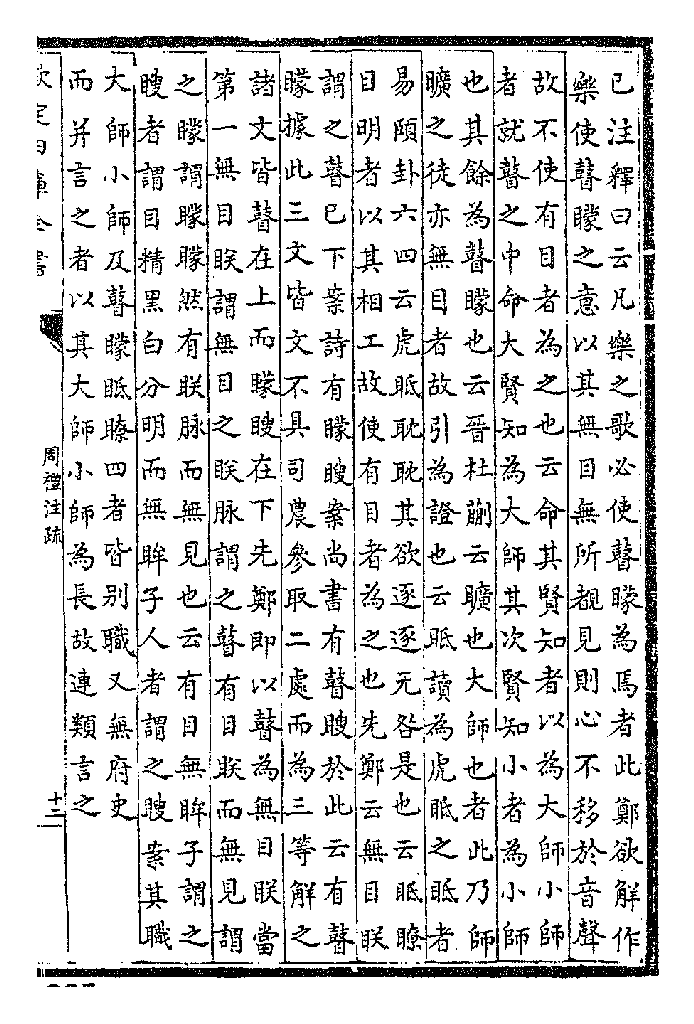 已注釋曰云凡樂之歌必使瞽矇為焉者此鄭欲解作
樂使瞽矇之意以其無目無所覩見則心不移於音聲
故不使有目者為之也云命其賢知者以為大師小師
者就瞽之中命大賢知為大師其次賢知小者為小師
也其餘為瞽矇也云晉杜蒯云曠也大師也者此乃師
曠之徒亦無目者故引為證也云眡讀為虎眡之眡者
易頤卦六四云虎眡耽耽其欲逐逐无咎是也云眡瞭
目明者以其相工故使有目者為之也先鄭云無目眹
謂之瞽已下案詩有矇瞍案尚書有瞽瞍於此云有瞽
矇據此三文皆文不具司農參取二處而為三等解之
諸文皆瞽在上而矇瞍在下先鄭即以瞽為無目眹當
第一無目眹謂無目之眹脉謂之瞽有目眹而無見謂
之矇謂矇矇然有眹脉而無見也云有目無眸子謂之
瞍者謂目精黑白分明而無眸子人者謂之瞍案其職
大師小師及瞽矇眡瞭四者皆別職又無府史
而并言之者以其大師小師為長故連類言之
欽定四庫全書
周禮注疏
十二